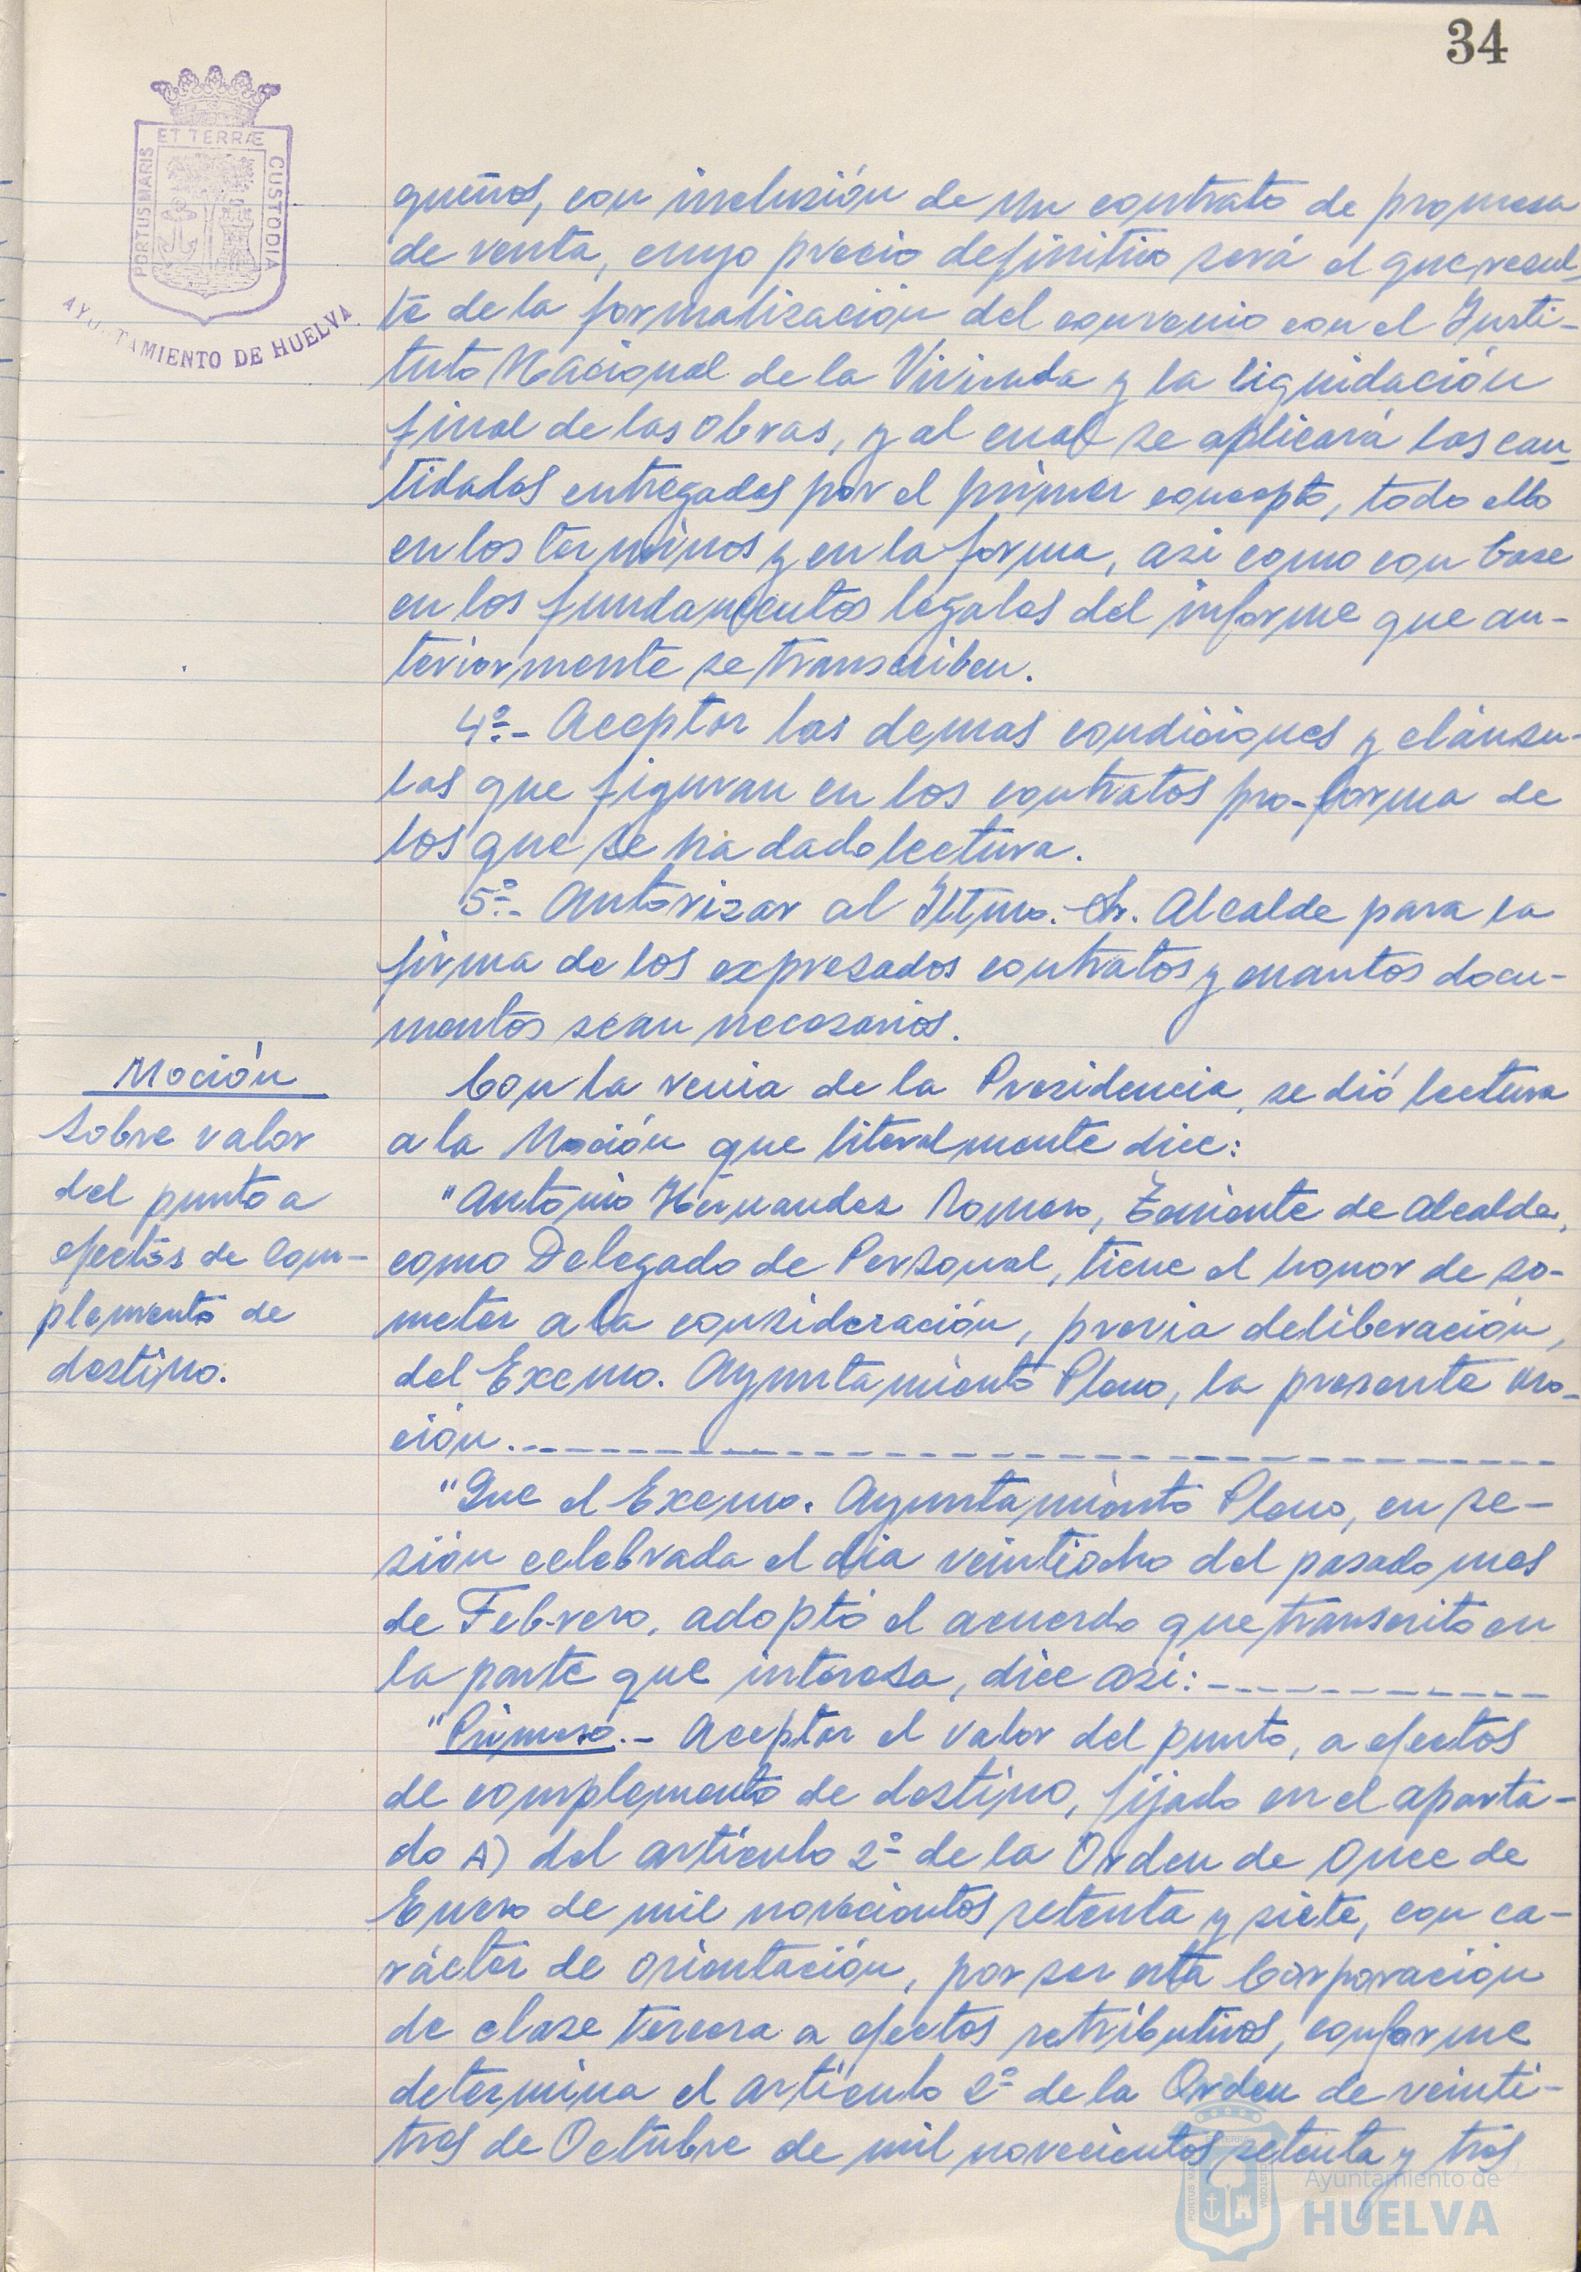 34
ET TERRÆ
PORTUS MARIS
CUSTODIA
AYUNTAMIENTO DE HUELVA
queños, con inclusión de un contrato de promesa
de venta, cuyo precio definitivo será el que resul-
te de la formalización del convenio con el Insti-
tuto Nacional de la Vivienda y la liquidación
final de las obras, y al cual se aplicará las can-
tidades entregadas por el primer concepto, todo ello
en los terminos y en la forma, asi como con base
en los fundamentos legales del informe que an-
teriormente se transcriben.
4º.- Aceptar las demas condiciones y cláusu-
las que figuran en los contratos pro-forma de
los que se ha dado lectura.
5º.- Autorizar al Iltmo. Sr. Alcalde para la
firma de los expresados contratos y cuantos docu-
mentos sean necesarios.
Moción
Sobre valor
del punto a
efectos de Com-
plemento de
destino.
Con la venia de la Presidencia, se dió lectura
a la Moción que literalmente dice:
"Antonio Hernandez Romero, Teniente de Alcalde,
como Delegado de Personal, tiene el honor de so-
meter a la consideración, previa deliberación,
del Excmo. Ayuntamiento Pleno, la presente mo-
ción.
"Que el Excmo. Ayuntamiento Pleno, en se-
sión celebrada el dia veintiocho del pasado mes
de Febrero, adoptó el acuerdo que transcrito en
la parte que interesa, dice asi:
"Primero.- Aceptar el valor del punto, a efectos
de complemento de destino, fijado en el aparta-
do A) del artículo 2º de la Orden de once de
Enero de mil novecientos setenta y siete, con ca-
rácter de orientación, por ser esta Corporación
de clase tercera a efectos retributivos, conforme
determina el artículo 2º de la Orden de veinti-
tres de Octubre de mil novecientos setenta y tres
Ayuntamiento de
HUELVA